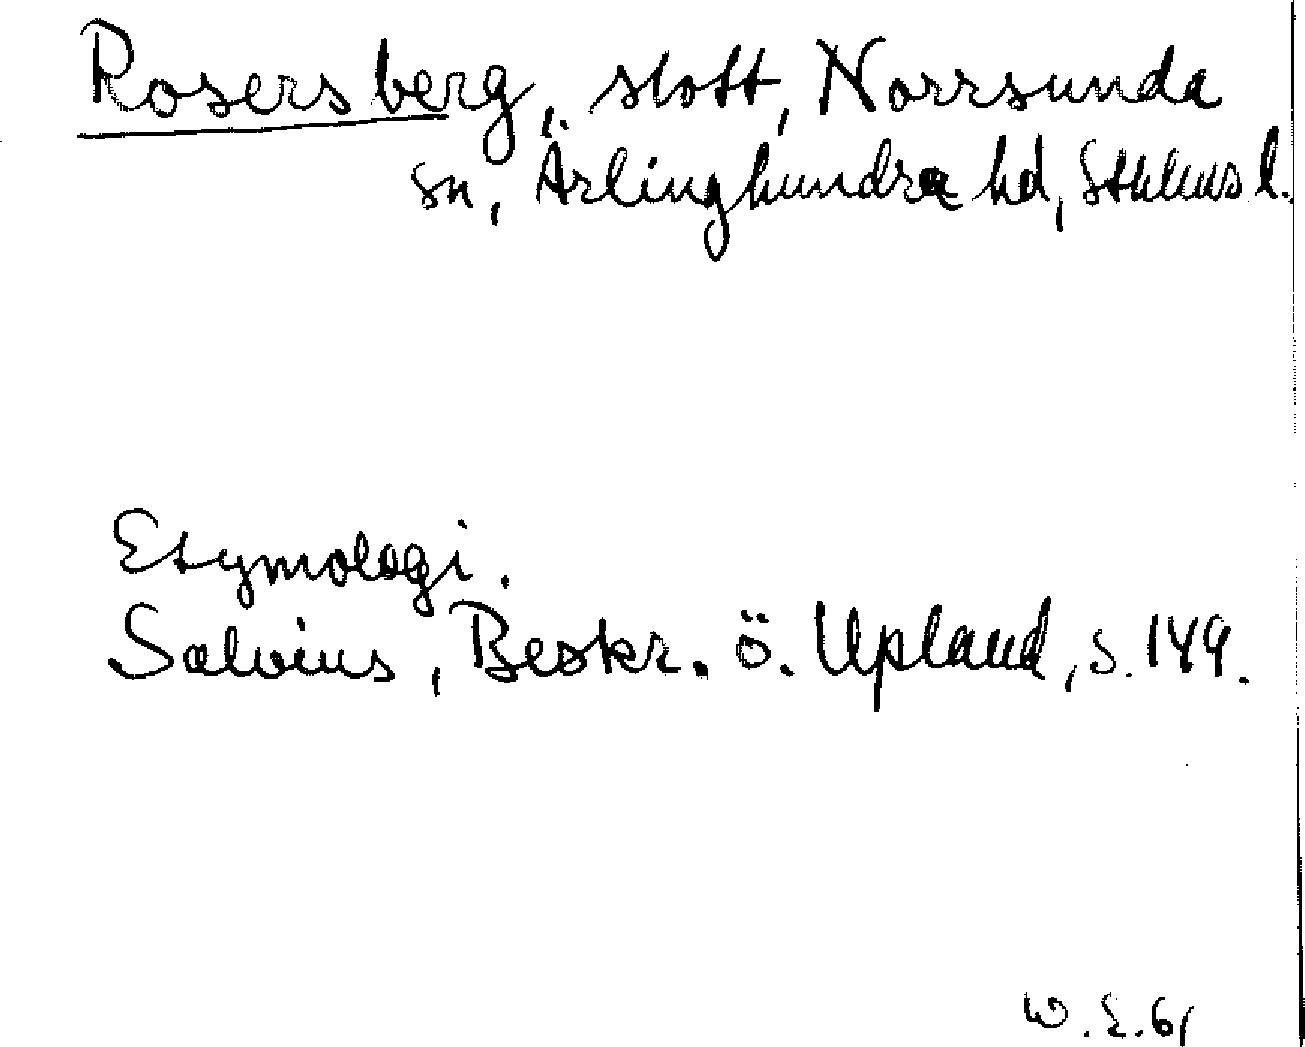 Rosersberg, slott, Norrsunda
sn, Ärlinghundra hd, Sthlms l.
Etymologi.
Salvius, Beskr. ö. Upland, s. 149.
W. E. 61